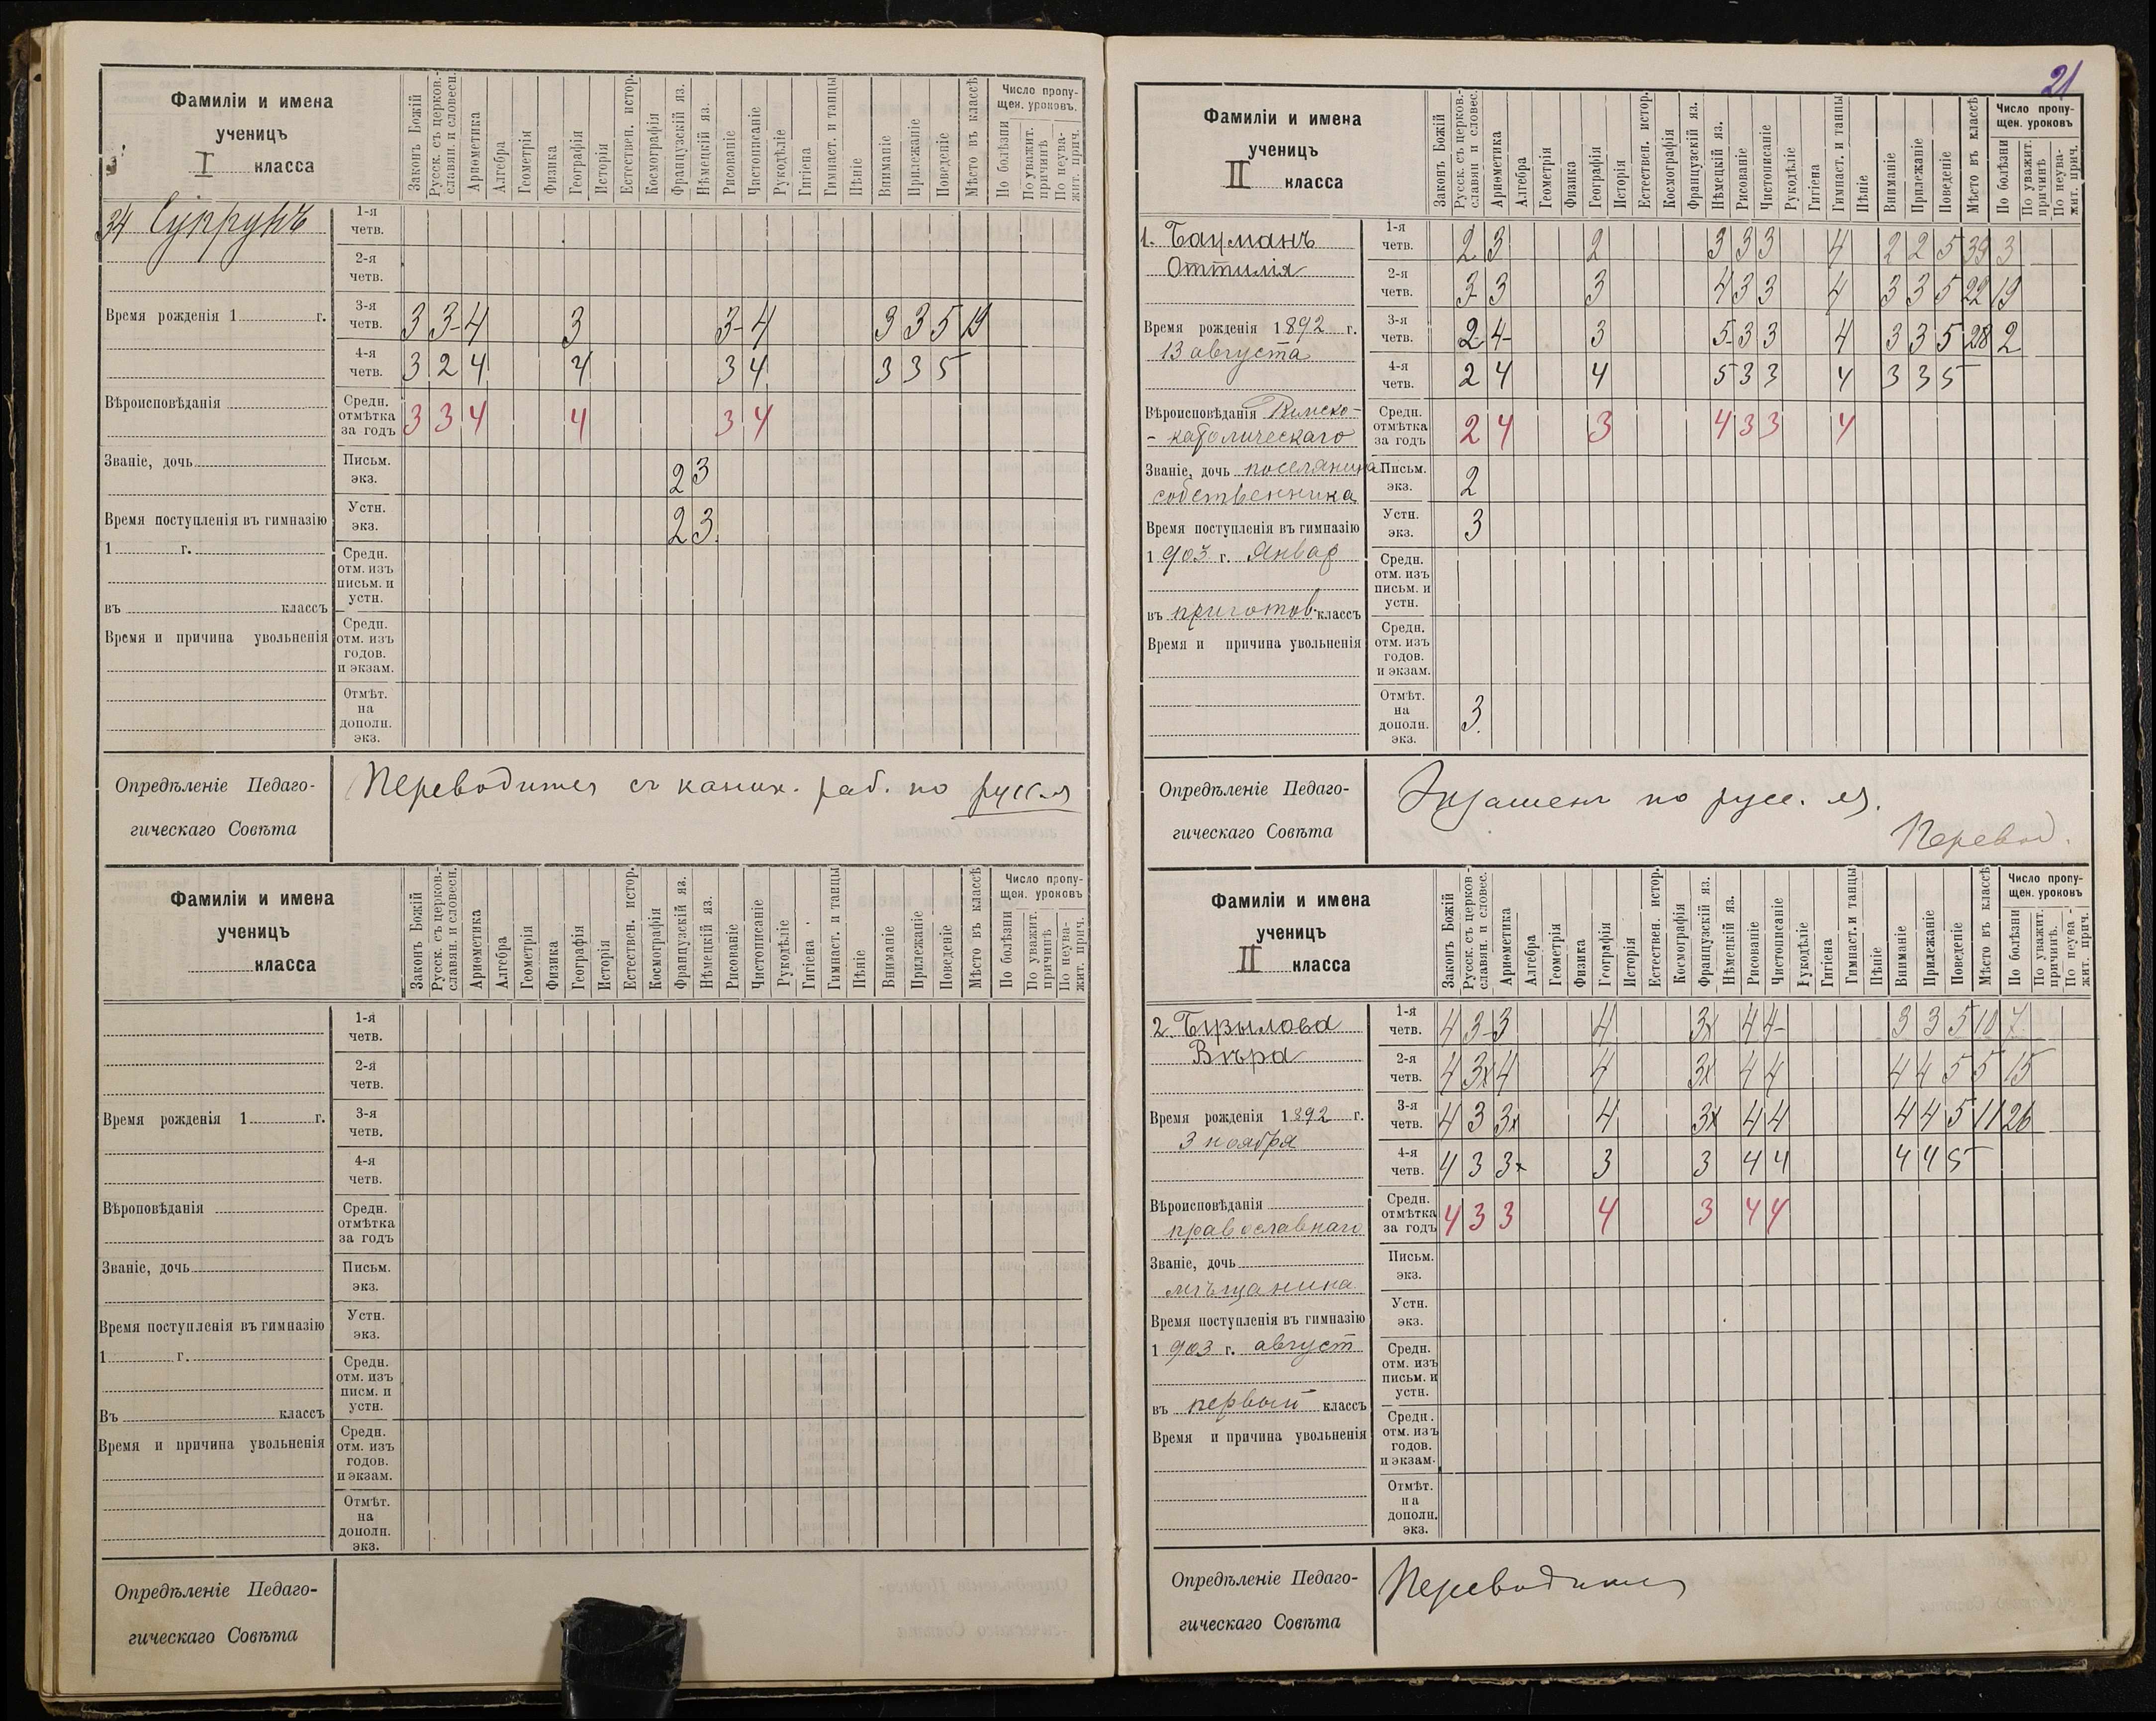 Фамиліи и имена
ученицъ
I класса
Законъ Божій
Русск. съ церков.-
славян. и словесн.
Ариѳметика
Алгебра
Геометрія
Физика
Географія
Исторія
Естествен. истор.
Космографія
Французскій яз.
Нѣмецкій яз.
Рисованіе
Чистописаніе
Рукодѣліе
Гигіена
Гимнаст. и танцы
Пѣніе
Вниманіе
Прилежаніе
Поведеніе
Мѣсто въ классѣ
Число пропу-
щен. уроковъ.
По болѣзни
По уважит.
причинѣ
По неува-
жит. прич.
34 Супрунъ
1-я
четв.
2-я
четв.
Время рожденія 1 г.
3-я
четв. 3 3- 4 3 3- 4 3 3 5 19
4-я
четв. 3 2 4 4 3 4 3 3 5
Вѣроисповѣданія
Средн.
отмѣтка
за годъ 3 3 4 4 3 4
Званіе, дочь
Письм.
экз. 2 3
Время поступленія въ гимназію
1 г.
Устн.
экз. 2 3
Средн.
отм. изъ
письм. и
устн.
въ классъ
Время и причина увольненія
Средн.
отм. изъ
годов.
и экзам.
Отмѣт.
на
дополн.
экз.
Опредѣленіе Педаго-
гическаго Совѣта
Переводится съ каник. раб. по русск. я
Фамиліи и имена
ученицъ
класса
Законъ Божій
Русск. съ церков.-
славян. и словесн.
Ариѳметика
Алгебра
Геометрія
Физика
Географія
Исторія
Естествен. истор.
Космографія
Французскій яз.
Нѣмецкій яз.
Рисованіе
Чистописаніе
Рукодѣліе
Гигіена
Гимнаст. и танцы
Пѣніе
Вниманіе
Прилежаніе
Поведеніе
Мѣсто въ классѣ
Число пропу-
щен. уроковъ
По болѣзни
По уважит.
причинѣ
По неува-
жит. прич.
1-я
четв.
2-я
четв.
Время рожденія 1 г.
3-я
четв.
4-я
четв.
Вѣроповѣданія
Средн.
отмѣтка
за годъ
Званіе, дочь
Письм.
экз.
Время поступленія въ гимназію
1 г.
Устн.
экз.
Средн.
отм. изъ
писм. и
устн.
Въ классъ
Время и причина увольненія
Средн.
отм. изъ
годов.
и экзам.
Отмѣт.
на
дополн.
экз.
Опредѣленіе Педаго-
гическаго Совѣта
21
Фамиліи и имена
ученицъ
II класса
Законъ Божій
Русск. съ церков.-
славян и словес.
Ариѳметика
Алгебра
Геометрія
Физика
Географія
Исторія
Естествен. истор.
Космографія
Французскій яз.
Нѣмецкій яз.
Рисованіе
Чистописаніе
Рукодѣліе
Гигіена
Гимнаст. и танцы
Пѣніе
Вниманіе
Прилежаніе
Поведеніе
Мѣсто въ классѣ
Число пропу-
щен. уроковъ
По болѣзни
По уважит.
причинѣ
По неува-
жит. прич.
1. Бауманъ
Оттилія
1-я
четв. 2 3 2 3 3 3 4 2 2 5 39 3
2-я
четв. 3 3 3 4 3 3 4 3 3 5 22 19
Время рожденія 1892 г.
13 августа
3-я
четв. 2- 4- 3 5- 3 3 4 3 3 5 28 2
4-я
четв. 2 4 4 5 3 3 4 3 3 5
Вѣроисповѣданія Римско-
-католическаго
Средн.
отмѣтка
за годъ 2 4 3 4 3 3 4
Званіе, дочь поселянина
собственника
Письм.
экз. 2
Время поступленія въ гимназію
1903 г. Январ
Устн.
экз. 3
Средн.
отм. изъ
письм. и
устн.
въ приготов. классъ
Время и причина увольненія
Средн.
отм. изъ
годов.
и экзам.
Отмѣт.
на
дополн.
экз. 3
Опредѣленіе Педаго-
гическаго Совѣта
Экзаменъ по русс. яз.
Перевод.
Фамиліи и имена
ученицъ
II класса
Законъ Божій
Русск. съ церков-
славян. и словес.
Ариѳметика
Алгебра
Геометрія
Физика
Географія
Исторія
Естествен. истор.
Космографія
Французскій яз.
Нѣмецкій яз.
Рисованіе
Чистописаніе
Рукодѣліе
Гигіена
Гимнаст. и танцы
Пѣніе
Вниманіе
Прилежаніе
Поведеніе
Мѣсто въ классѣ
Число пропу-
щен. уроковъ
По болѣзни
По уважит.
причинѣ.
По неува-
жит. прич.
2. Бузылова
Вѣра
1-я
четв. 4 3- 3 4 3x 4 4- 3 3 5 10 7
2-я
четв. 4 3x 4 4 3x 4 4 4 4 5 5 15
Время рожденія 1892 г.
3 ноября
3-я
четв. 4 3 3x 4 3x 4 4 4 4 5 11 26
4-я
четв. 4 3 3x 3 3 4 4 4 4 5
Вѣроисповѣданія
православнаго
Средн.
отмѣтка
за годъ 4 3 3 4 3 4 4
Званіе, дочь
мѣщанина
Письм.
экз.
Время поступленія въ гимназію
1903 г. август
Устн.
экз.
Средн.
отм. изъ
письм. и
устн.
въ первый классъ
Время и причина увольненія
Средн.
отм. изъ
годов.
и экзам.
Отмѣт.
на
дополн.
экз.
Опредѣленіе Педаго-
гическаго Совѣта
Переводится